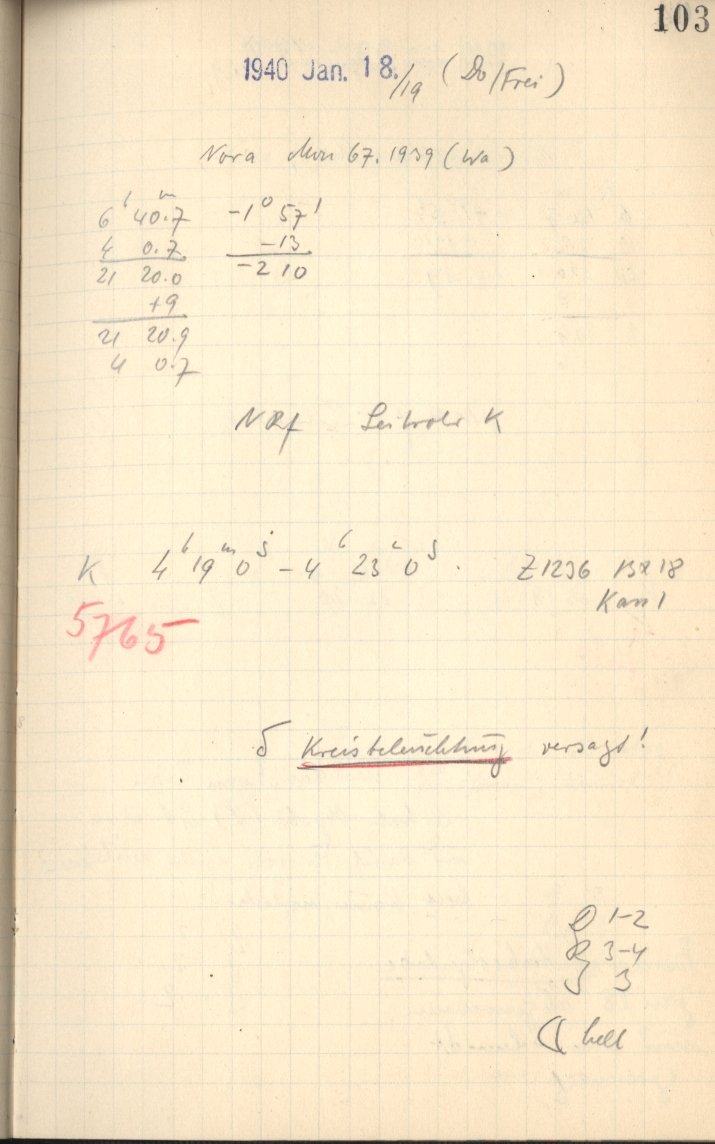 103
1940 Jan. 18./19 (Do/Frei)
Nova Mon 67.1939 (Wa)
6ʰ 40.7ᵐ -1° 57'
4 0.7 -13
21 20.0 -2 10
+9
21 20.9
4 0.7
NRf Leitrohr K
K 4ʰ 19ᵐ 0ˢ - 4ʰ 23ᵐ 0ˢ. Z1236 Br 18
Kass 1
5765
δ Kreisbeleuchtung versagt!
1-2
R 3-4
3
☾ hell